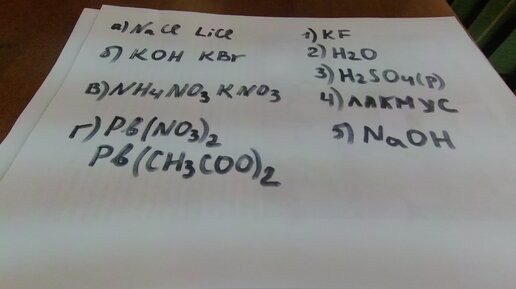 а) NaCl LiCl
б) KOH KBr
в) NH4NO3 KNO3
г) Pb(NO3)2
Pb(CH3COO)2
1) KF
2) H2O
3) H2SO4(р)
4) ЛАКМУС
5) NaOH